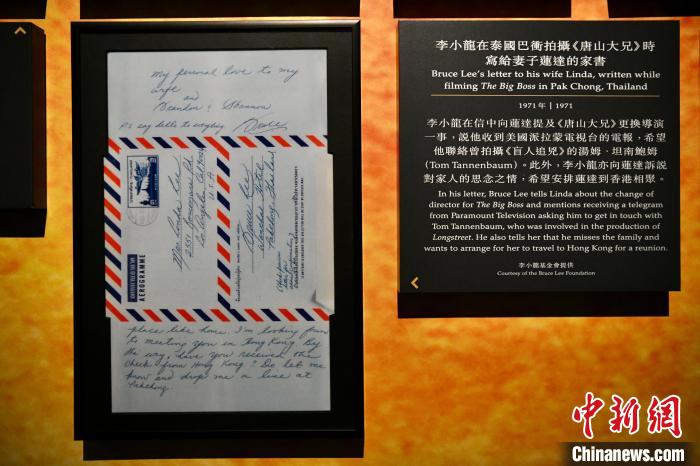 my personal love to my
wife
and
Brandon & Shannon
P.S. say hello to everybody
Bruce
Mrs. Linda Lee
2551
Los Angeles Cal.
U.S.A.
AEROGRAMME
Bruce Lee
Hotel
Pakchong, Thailand
place like home. I'm looking forward
to meeting you in Hong Kong. By
the way, have you received the
check from Hong Kong? Do let me
know and drop me a line at
Pakchong.
李小龍在泰國巴衝拍攝《唐山大兄》時
寫給妻子蓮達的家書
Bruce Lee's letter to his wife Linda, written while
filming The Big Boss in Pak Chong, Thailand
1971年 | 1971
李小龍在信中向蓮達提及《唐山大兄》更換導演
一事，說他收到美國派拉蒙電視台的電報，希望
他聯絡曾拍攝《盲人追兇》的湯姆．坦南鮑姆
(Tom Tannenbaum)。此外，李小龍亦向蓮達訴說
對家人的思念之情，希望安排蓮達到香港相聚。
In his letter, Bruce Lee tells Linda about the change of
director for The Big Boss and mentions receiving a telegram
from Paramount Television asking him to get in touch with
Tom Tannenbaum, who was involved in the production of
Longstreet. He also tells her that he misses the family and
wants to arrange for her to travel to Hong Kong for a reunion.
李小龍基金會提供
Courtesy of the Bruce Lee Foundation
中新网
Chinanews.com